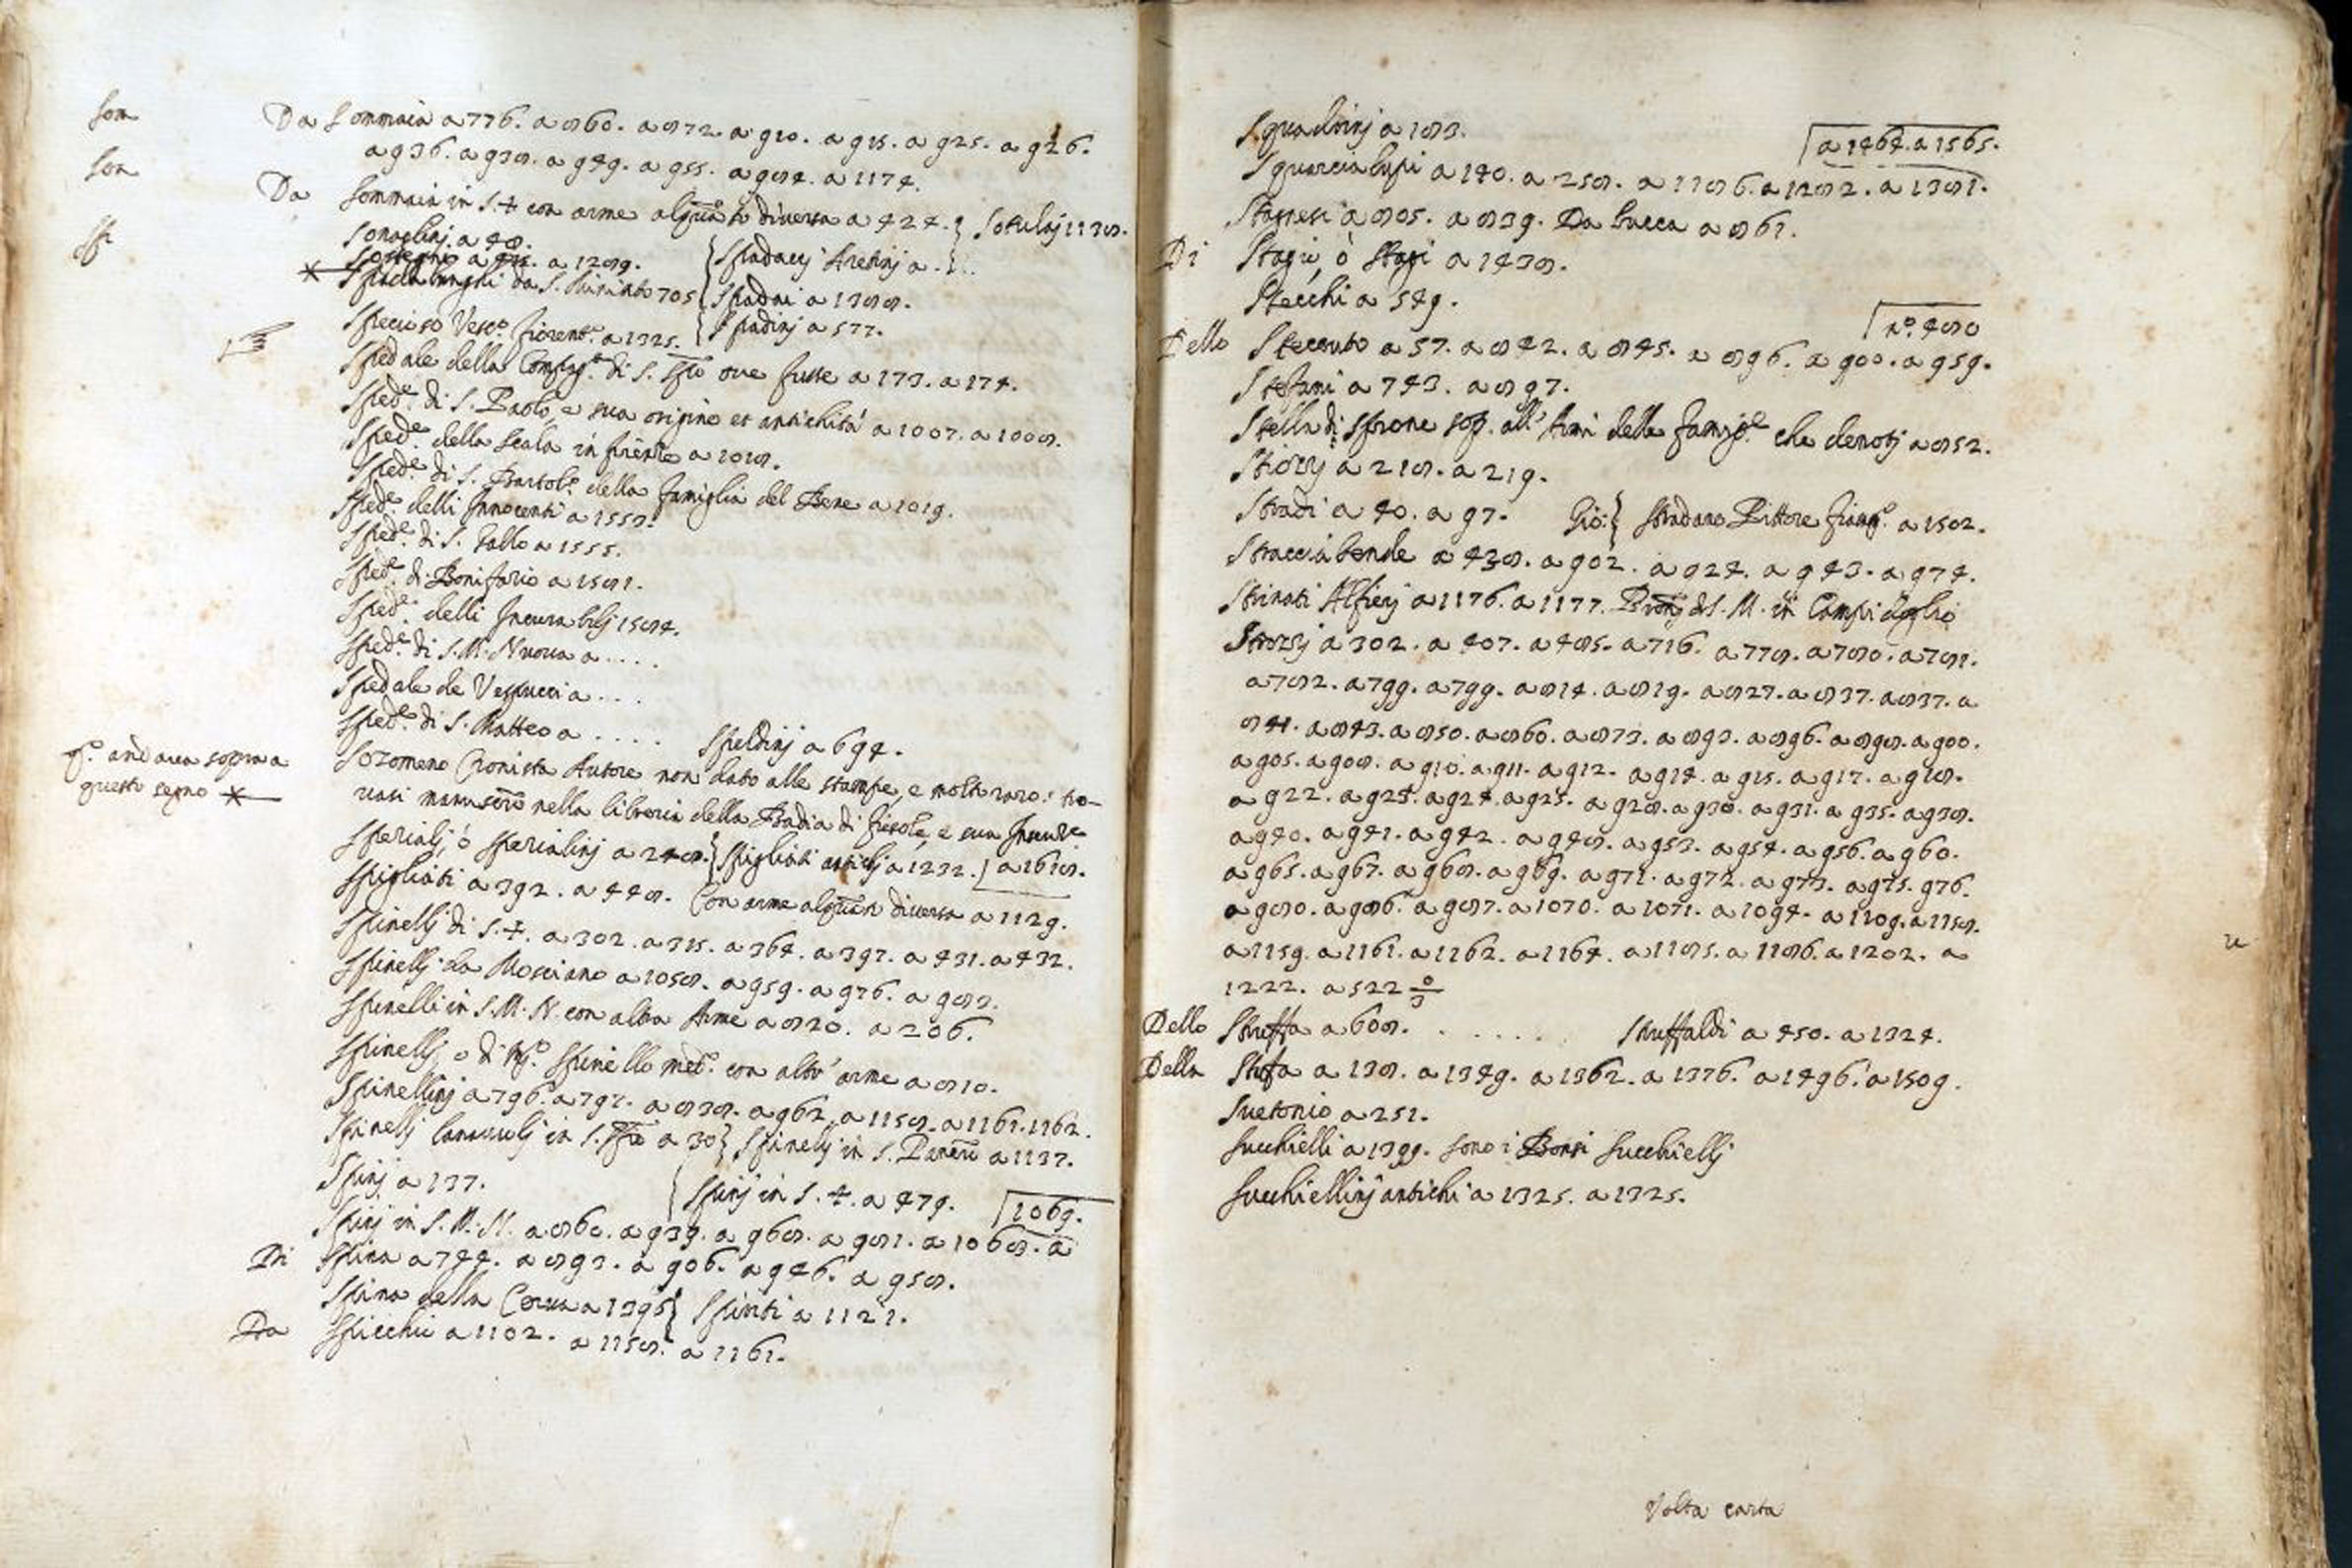 Som
Da Sommaia a 776. a 860. a 872. a 910. a 915. a 925. a 926.
a 936. a 938. a 949. a 955. a 984. a 1174.
Son
Da Sommaia in S. + con arme alquāto diversa a 424. } Sotulaj 1138.
Sp
Sonaglinj. a 48.
Sostegno a 1289. { Spadacj Aretinj a . . .
* Spadalunghi da S. Miniato 705 { Spadai a 1388.
Specioso Vesc.º fiorent.º a 1325. { Spadinj a 577.
Spedale della Compag.ª di S. Spto ove fusse a 173. a 174.
Sped.e di S. Paolo, e sua origine et antichità a 1007. a 1008.
Sped.e della Scala in firenze a 1018.
Sped.e di S. Bartol.º della famiglia del Bene a 1019.
Sped.e delli Innocenti a 1558.
Sped.e di S. Gallo a 1555.
Sped.e di Bonifazio a 1581.
Sped.e delli Incurabilj 1584.
Sped.e di S. M. Nuova a . . . .
Spedale de Vespucci a . . . .
Sped.e di S. Matteo a . . . . Speldinj a 694.
q.º andava sopra a
questo segno *
Sozomeno Cronista Autore non dato alle stampe, e molto raro: tro-
vasi manuscrō nella libreria della Badia di fiesole, e sua
Sperialj, ò Sperialinj a 248. } Spigliati antichj a 1232. | a 1618.
Spigliati a 392. a 448. Con arme alquāto diversa a 1129.
Spinellj di S. +. a 302. a 315. a 364. a 397. a 431. a 432.
Spinellj da Mosciano a 1058. a 959. a 976. a 982.
Spinelli in S. M. N. con altra Arme a 820. a 206.
Spinellj, o di Spinello med.º con altr' arme a 810.
Spinellinj a 796. a 797. a 838. a 962. a 1158. a 1161. 1162.
Spinellj in S. Spto a 30 } Spinellj in S. Panerō a 1137.
Spinj a 137. { Spinj in S. +. a 479. 1069.
Spinj in S. M. N. a 860. a 939. a 968. a 981. a 1068. a
Di Spina a 744. a 893. a 906. a 946. a 958.
Spina della Cerva a 1395 { Spiriti a 1121.
Da Spicchio a 1102. a 1158. a 1161.
Squadrinj a 183.
a 1464. a 1565.
Squarcialupi a 140. a 258. a 1186. a 1282. a 1381.
a 805. a 839. Da Lucca a 861.
Di Stagio, ò Stagi a 1438.
Stecchi a 549.
nº. 480
Dello Steccuto a 57. a 842. a 845. a 896. a 900. a 959.
Stefani a 743. a 897.
Stella di sprone sop. all' Armi della famigl.e che denotj a 852.
Storzj a 218. a 219.
Stradi a 40. a 97. Gio: { Stradano Pittore fiamg.º a 1502.
Stracciabende a 438. a 902. a 924. a 943. a 974.
Strinati Alfierj a 1176. a 1177. d S. M. in Campidoglio
Strozzj a 302. a 407. a 485. a 716. a 778. a 780. a 781.
a 782. a 799. a 799. a 814. a 819. a 827. a 837. a 837. a
841. a 843. a 850. a 860. a 873. a 893. a 896. a 898. a 900.
a 905. a 908. a 910. a 911. a 912. a 914. a 915. a 917. a 918.
a 922. a 923. a 924. a 925. a 928. a 930. a 931. a 935. a 938.
a 940. a 941. a 942. a 948. a 953. a 954. a 956. a 960.
a 965. a 967. a 968. a 969. a 971. a 972. a 973. a 975. 976.
a 980. a 986. a 987. a 1070. a 1071. a 1094. a 1109. a 1158.
a 1159. a 1161. a 1162. a 1164. a 1185. a 1186. a 1202. a
1222. a 522 0/3
Dello Struffa a 608. . . . . . Struffaldi a 450. a 1324.
Della Stufa a 138. a 1349. a 1362. a 1376. a 1496. a 1509.
Suetonio a 251.
Succhielli a 1399. sono i Bonsi Succhiellj
Succhiellinj antichi a 1325. a 1325.
Volta carta